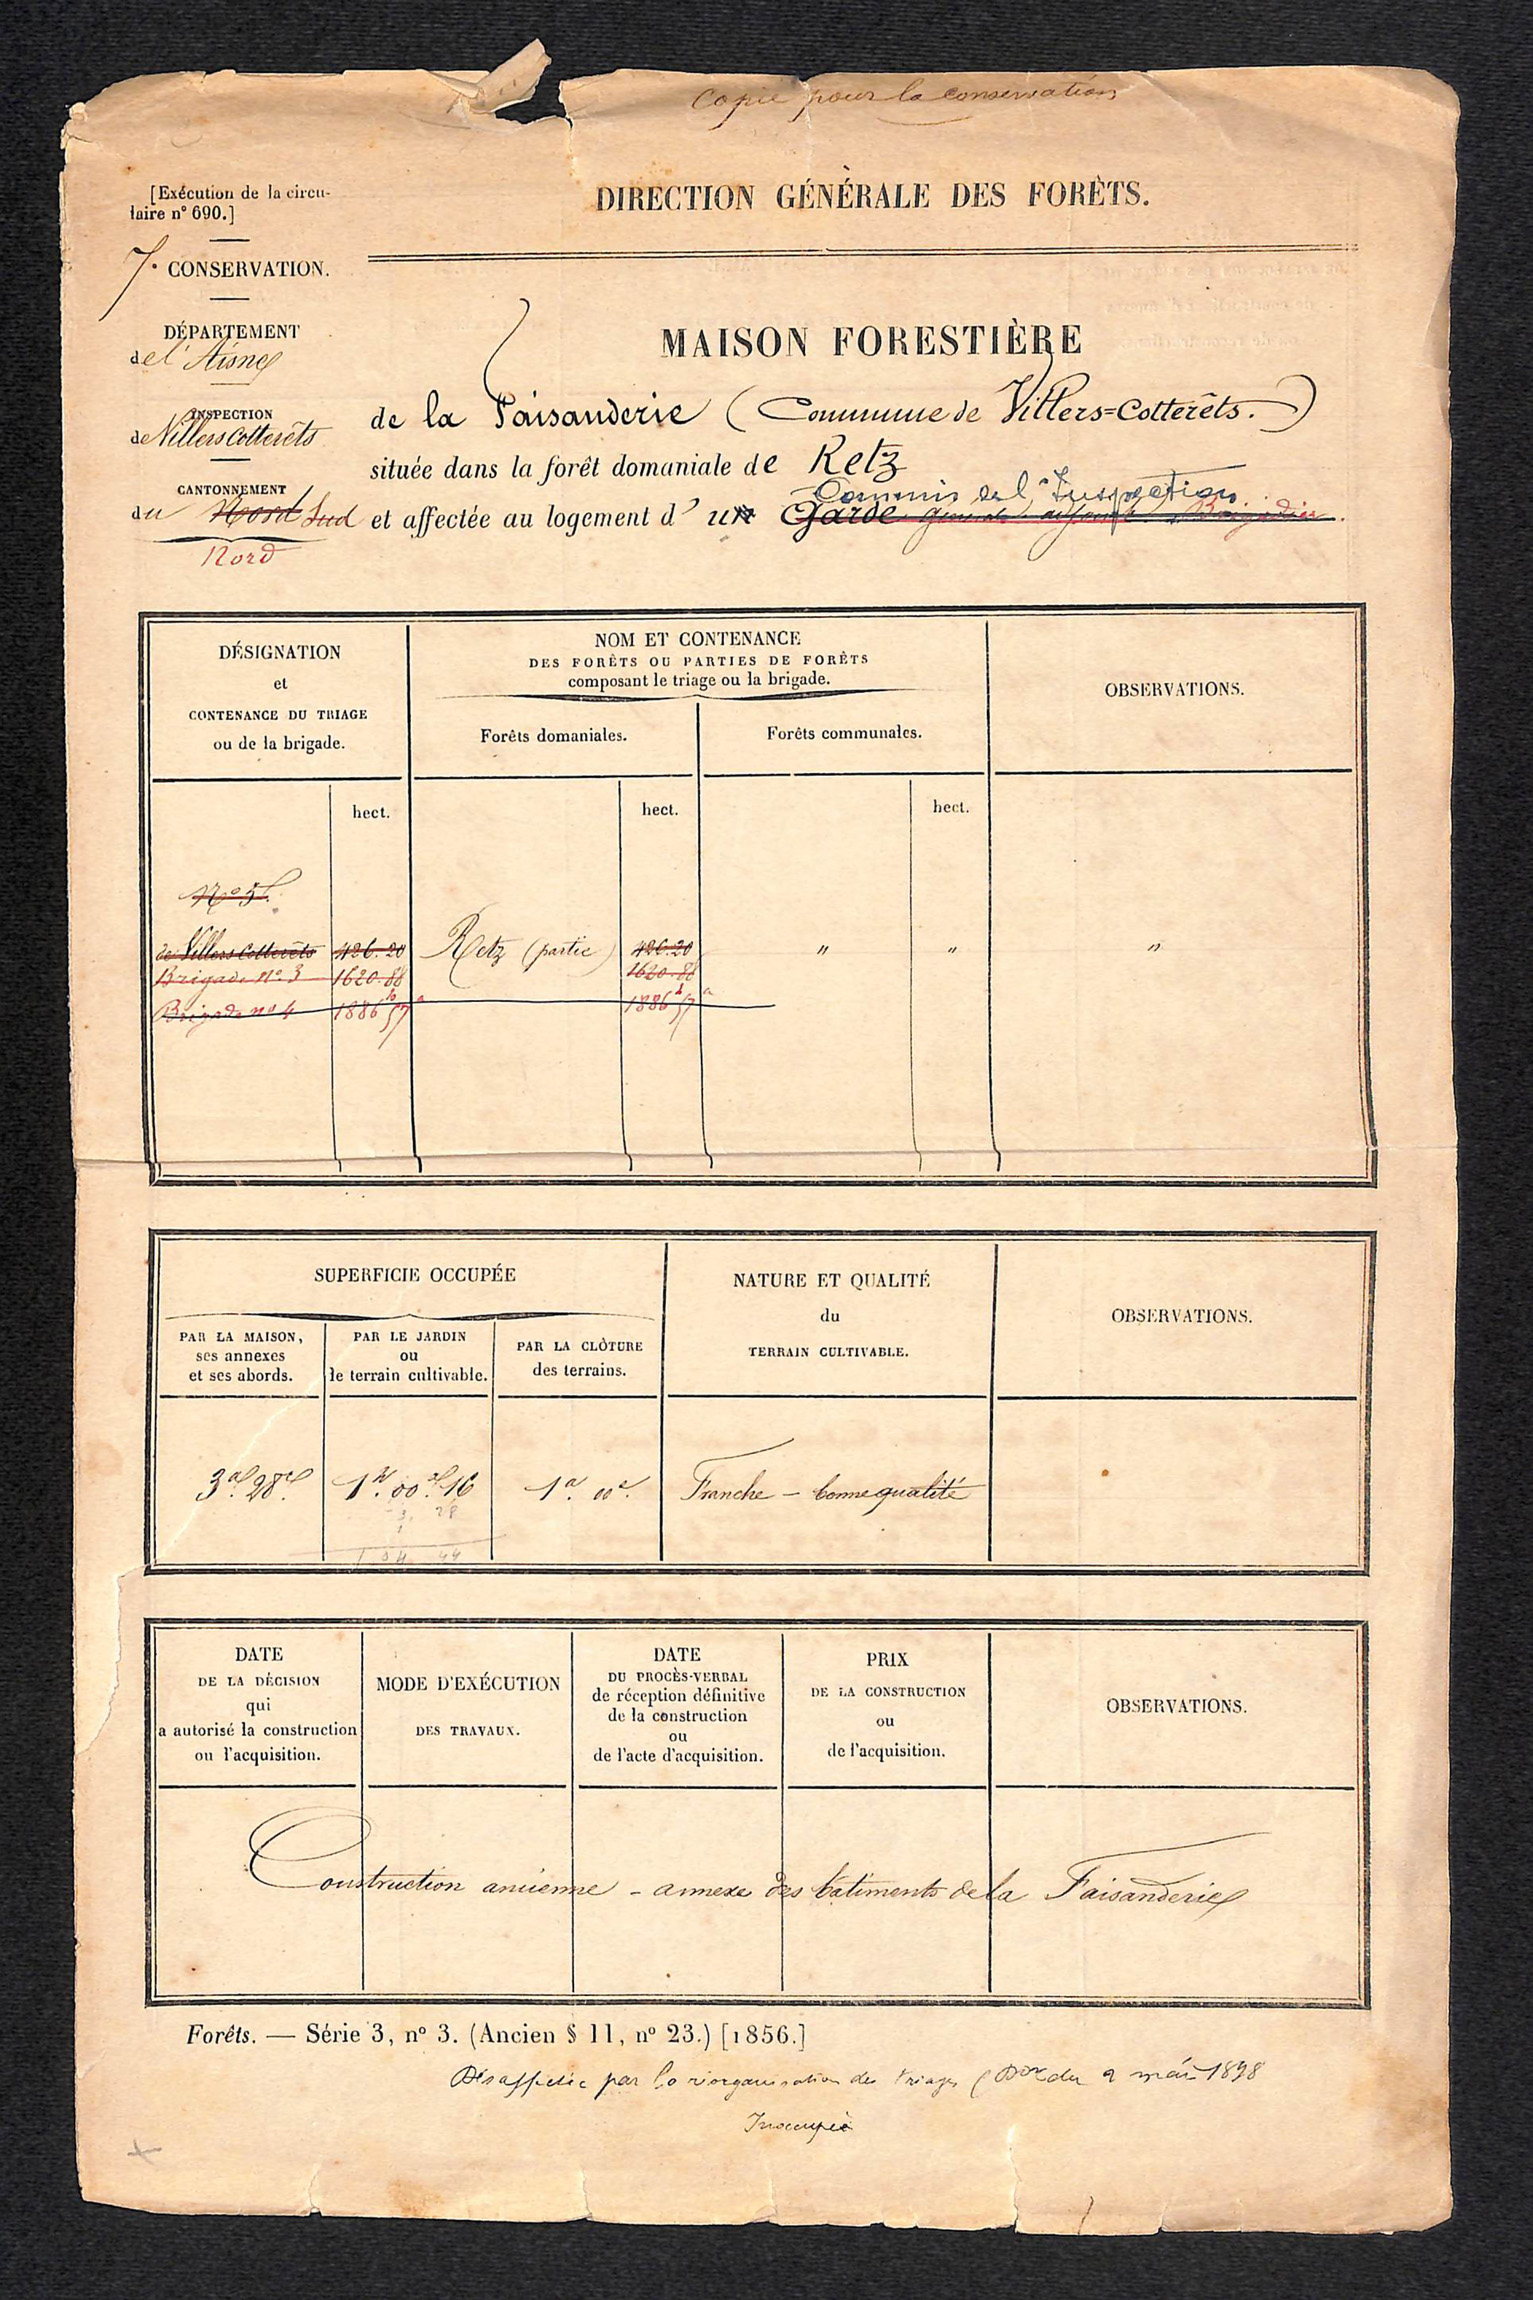 Copie pour la conservation
[Exécution de la circu-
laire n° 690.]
DIRECTION GÉNÉRALE DES FORÊTS.
7e CONSERVATION.
DÉPARTEMENT
de l'Aisne
MAISON FORESTIÈRE
INSPECTION
de Villers Cotterêts
de la Faisanderie (Commune de Villers=Cotterêts.)
située dans la forêt domaniale de Retz
CANTONNEMENT
Commis de l'Inspection
du Nord Sud
et affectée au logement d'un Garde général adjoint Brigadier.
Nord
DÉSIGNATION
et
CONTENANCE DU TRIAGE
ou de la brigade.
NOM ET CONTENANCE
DES FORÊTS OU PARTIES DE FORÊTS
composant le triage ou la brigade.
Forêts domaniales.
Forêts communales.
OBSERVATIONS.
hect.
hect.
hect.
N° 5
de Villers Cotterêts 426.20 Retz (partie) 426.20 " " "
Brigade n° 3 1620.88 1620.88
Brigade n° 4 1886h 57a 1886h 57a
SUPERFICIE OCCUPÉE
PAR LA MAISON,
ses annexes
et ses abords.
PAR LE JARDIN
ou
le terrain cultivable.
PAR LA CLÔTURE
des terrains.
NATURE ET QUALITÉ
du
TERRAIN CULTIVABLE.
OBSERVATIONS.
3a 28c 1h. 00a 16 1a. 00c. Franche - bonne qualité
3. 28
1
1 04 44
DATE
DE LA DÉCISION
qui
a autorisé la construction
ou l'acquisition.
MODE D'EXÉCUTION
DES TRAVAUX.
DATE
DU PROCÈS-VERBAL
de réception définitive
de la construction
ou
de l'acte d'acquisition.
PRIX
DE LA CONSTRUCTION
ou
de l'acquisition.
OBSERVATIONS.
Construction ancienne - annexe des bâtiments de la Faisanderie
Forêts. — Série 3, n° 3. (Ancien § 11, n° 23.) [1856.]
Désaffectée par la réorganisation des triages (Don du 2 mai 1898
Inoccupée